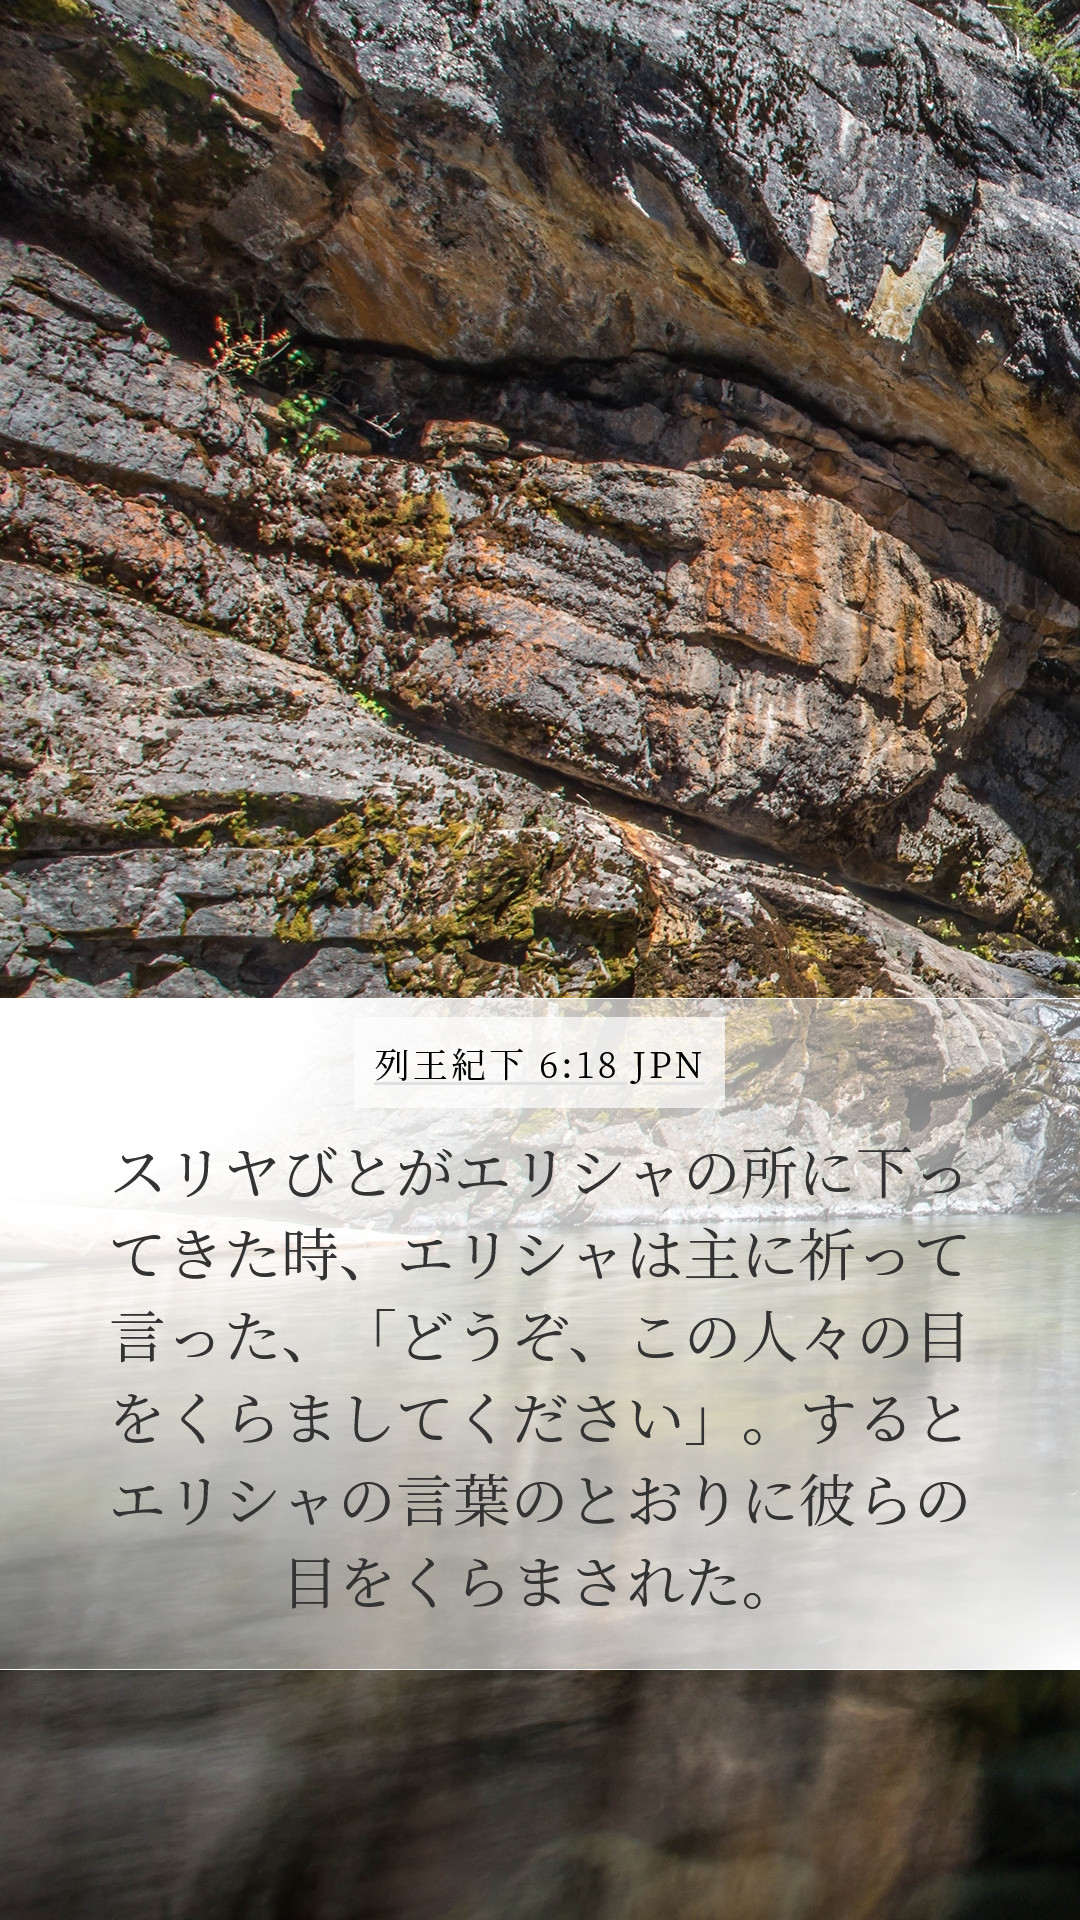 列王紀下 6:18 JPN
スリヤびとがエリシャの所に下っ
てきた時、エリシャは主に祈って
言った、「どうぞ、この人々の目
をくらましてください」。すると
エリシャの言葉のとおりに彼らの
目をくらまされた。